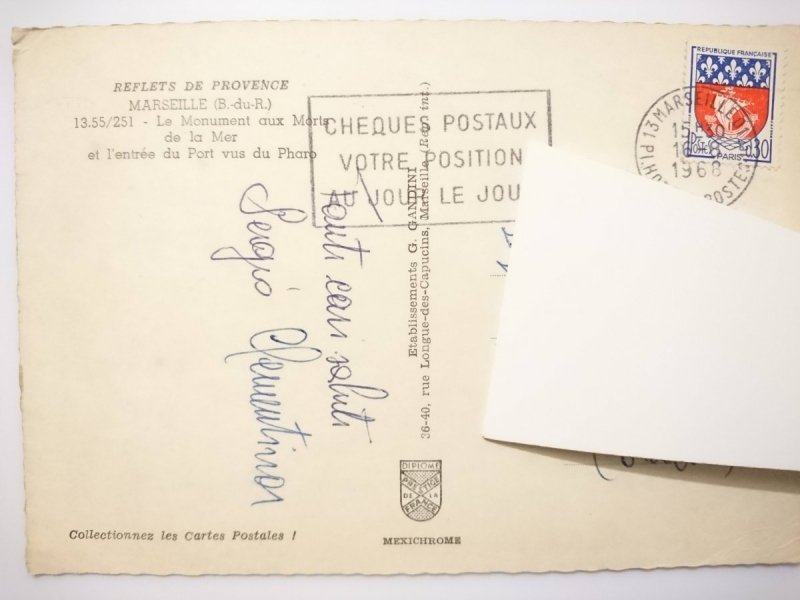 REFLETS DE PROVENCE
MARSEILLE (B.-du-R.)
13.55/251 - Le Monument aux Morts
de la Mer
et l'entrée du Port vus du Pharo
CHEQUES POSTAUX
VOTRE POSITION
JOUR LE JOU
REPUBLIQUE FRANÇAISE
POSTES
0,30
PARIS
13 MARSEILLE 01
15H30
8
1968
POSTES
tanti cari saluti
Sergio Clementina
Etablissements G. GANDINI
36-40, rue Longue-des-Capucins, Marseille (Rep. int.)
DIPLOME
PRESTIGE
DE LA
FRANCE
Collectionnez les Cartes Postales !
MEXICHROME